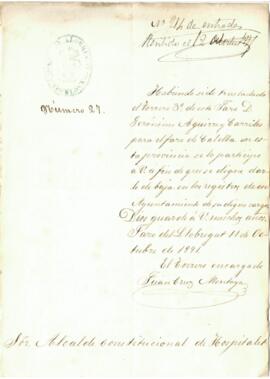 Nº 214 de entrada
Recibido el 12 Octubre
Número 27.
Habiendo sido trasladado
el torrero 3º de este Faro D.
Gerónimo Aguirre y Carriles
para el faro de Calella en
esta provincia se lo participo
a V. a fin de que se digne darle
de baja en los registros de ese
Ayuntamiento de su digno cargo
Dios guarde á V. muchos años.
Faro del Llobregat 11 de Oc-
tubre de 1891.
El Torrero encargado
Juan Cruz Montoya
Sor. Alcalde Constitucional de Hospitalet